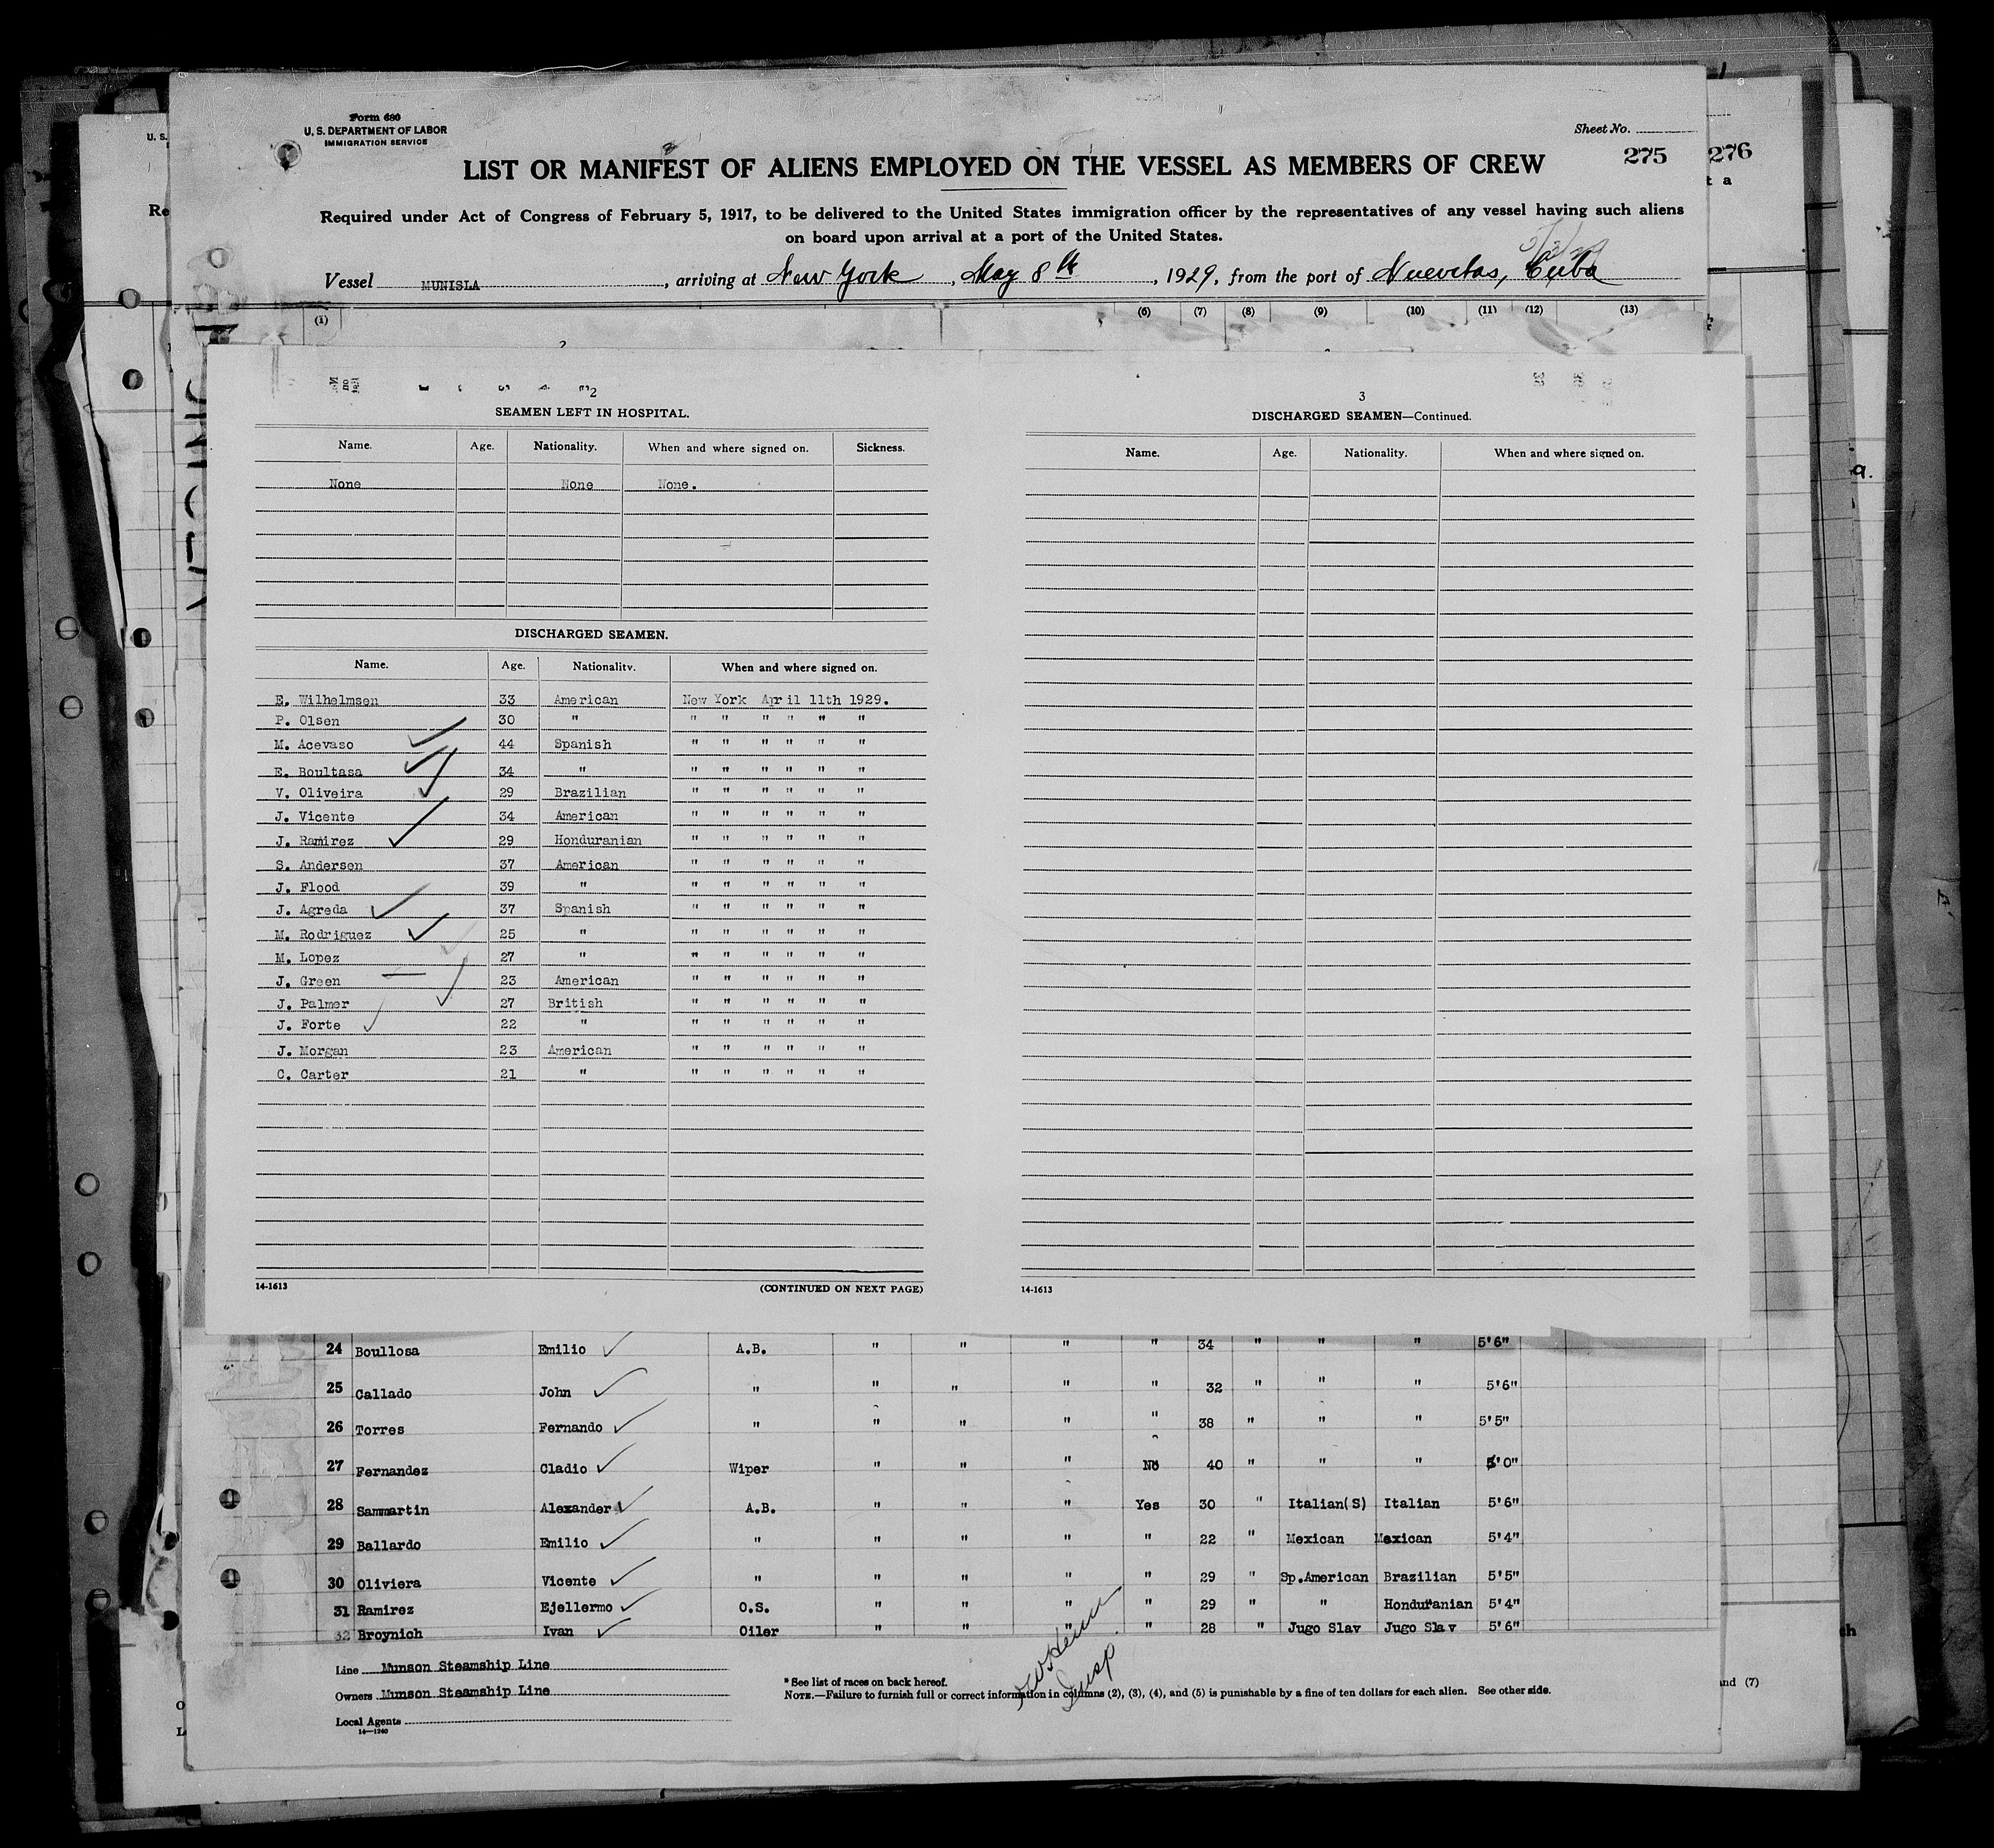 Form 680
U. S. DEPARTMENT OF LABOR
IMMIGRATION SERVICE
Sheet No.
LIST OR MANIFEST OF ALIENS EMPLOYED ON THE VESSEL AS MEMBERS OF CREW
275
276
Required under Act of Congress of February 5, 1917, to be delivered to the United States immigration officer by the representatives of any vessel having such aliens
on board upon arrival at a port of the United States.
Vessel MUNISLA, arriving at New York, May 8th, 1929, from the port of Nuevitas, Cuba
(1) (6) (7) (8) (9) (10) (11) (12) (13)
2
SEAMEN LEFT IN HOSPITAL.
Name. Age. Nationality. When and where signed on. Sickness.
None None None.
DISCHARGED SEAMEN.
Name. Age. Nationality. When and where signed on.
E. Wilhelmsen 33 American New York April 11th 1929.
P. Olsen 30 " " " " " " "
M. Acevaso 44 Spanish " " " " " "
E. Boultasa 34 " " " " " " "
V. Oliveira 29 Brazilian " " " " " "
J. Vicente 34 American " " " " " "
J. Ramirez 29 Honduranian " " " " " "
S. Andersen 37 American " " " " " "
J. Flood 39 " " " " " " "
J. Agreda 37 Spanish " " " " " "
M. Rodriguez 25 " " " " " " "
M. Lopez 27 " " " " " " "
J. Green 23 American " " " " " "
J. Palmer 27 British " " " " " "
J. Forte 22 " " " " " " "
J. Morgan 23 American " " " " " "
C. Carter 21 " " " " " " "
14-1613 (CONTINUED ON NEXT PAGE)
3
DISCHARGED SEAMEN—Continued.
Name. Age. Nationality. When and where signed on.
14-1613
24 Boullosa Emilio A.B. " " " " 34 " " " 5'6"
25 Callado John " " " " " 32 " " " 5'6"
26 Torres Fernando " " " " " 38 " " " 5'5"
27 Fernandez Cladio Wiper " " " No 40 " " " 5'0"
28 Sammartin Alexander A.B. " " " Yes 30 " Italian(S) Italian 5'6"
29 Ballardo Emilio " " " " " 22 " Mexican Mexican 5'4"
30 Oliviera Vicente " " " " " 29 " Sp.American Brazilian 5'5"
31 Ramirez Ejellermo O.S. " " " " 29 " " Honduranian 5'4"
32 Broynich Ivan Oiler " " " " 28 " Jugo Slav Jugo Slav 5'6"
Line Munson Steamship Line
Owners Munson Steamship Line
Local Agents
14—1240
* See list of races on back hereof.
NOTE.—Failure to furnish full or correct information in columns (2), (3), (4), and (5) is punishable by a fine of ten dollars for each alien. See other side.
Insp